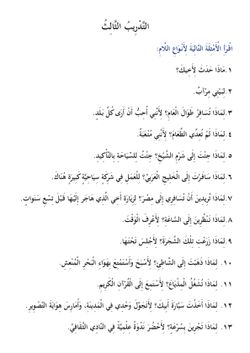 التَّدْرِيبُ الثَّالِثُ
اقْرَأْ الْأَمْثِلَةَ التَّالِيَةَ لِأَنْوَاعِ اللَّامِ:
١. مَاذَا حَدَثَ لِأَخِيكَ؟
٢. لَبَيْتِي مِرْآبٌ.
٣. لِمَاذَا تُسَافِرُ طَوَالَ الْعَامِ؟ لِأَنَّنِي أُحِبُّ أَنْ أَرَى كُلَّ بَلَدٍ.
٤. لِمَاذَا لَمْ تُعِدِّي الطَّعَامَ؟ لِأَنِّي مُتْعَبَةٌ.
٥. لِمَاذَا جِئْتَ إِلَى شَرْمِ الشَّيْخِ؟ جِئْتُ لِلسِّيَاحَةِ بِالتَّأْكِيدِ.
٦. لِمَاذَا سَافَرْتَ إِلَى الْخَلِيجِ الْعَرَبِيِّ؟ لِلْعَمَلِ فِي شَرِكَةٍ سِيَاحِيَّةٍ كَبِيرَةٍ هُنَاكَ.
٧. لِمَاذَا تُرِيدِينَ أَنْ تُسَافِرِي إِلَى مِصْرَ؟ لِزِيَارَةِ أَخِي الَّذِي هَاجَرَ إِلَيْهَا قَبْلَ تِسْعِ سَنَوَاتٍ.
٨. لِمَاذَا تَنْظُرِينَ إِلَى السَّاعَةِ؟ لِأَعْرِفَ الْوَقْتَ.
٩. لِمَاذَا زَرَعْتَ تِلْكَ الشَّجَرَةَ؟ لِأَجْلِسَ تَحْتَهَا.
١٠. لِمَاذَا ذَهَبْتَ إِلَى الشَّاطِئِ؟ لِأَسْبَحَ وَأَسْتَمْتِعَ بِهَوَاءِ الْبَحْرِ الْمُنْعِشِ.
١١. لِمَاذَا تُشَغِّلُ الْمِذْيَاعَ؟ لِأَسْتَمِعَ إِلَى الْقُرْآنِ الْكَرِيمِ.
١٢. لِمَاذَا أَخَذْتَ سَيَّارَةَ أَبِيكَ؟ لِأَتَجَوَّلَ وَحْدِي فِي الْمَدِينَةِ، وَأُمَارِسَ هِوَايَةَ التَّصْوِيرِ.
١٣. لِمَاذَا تَجْرِينَ بِسُرْعَةٍ؟ لِأَحْضُرَ نَدْوَةً عِلْمِيَّةً فِي النَّادِي الثَّقَافِيِّ.